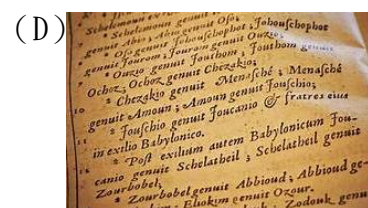 (D)
Schelemoun genuit
genuit Abia; Abia genuit Oso;
Oso genuit Jehouschophot; Jehouschophot
genuit Jourom; Jourom genuit Ouzio;
Ouzio genuit Jouthom; Jouthom genuit
Ochoz; Ochoz genuit Chezakio;
Chezakio genuit Menasché; Menasché
10 genuit Amoun; Amoun genuit Jouschio;
Jouschio genuit Joucanio & fratres eius
in exilio Babylonico.
Post exilium autem Babylonicum Jou-
canio genuit Schelatheil; Schelatheil genuit
Zourbobel;
Zourbobel genuit Abbioud; Abbioud ge-
Eliokim genuit Ozour.
Zodouk genui